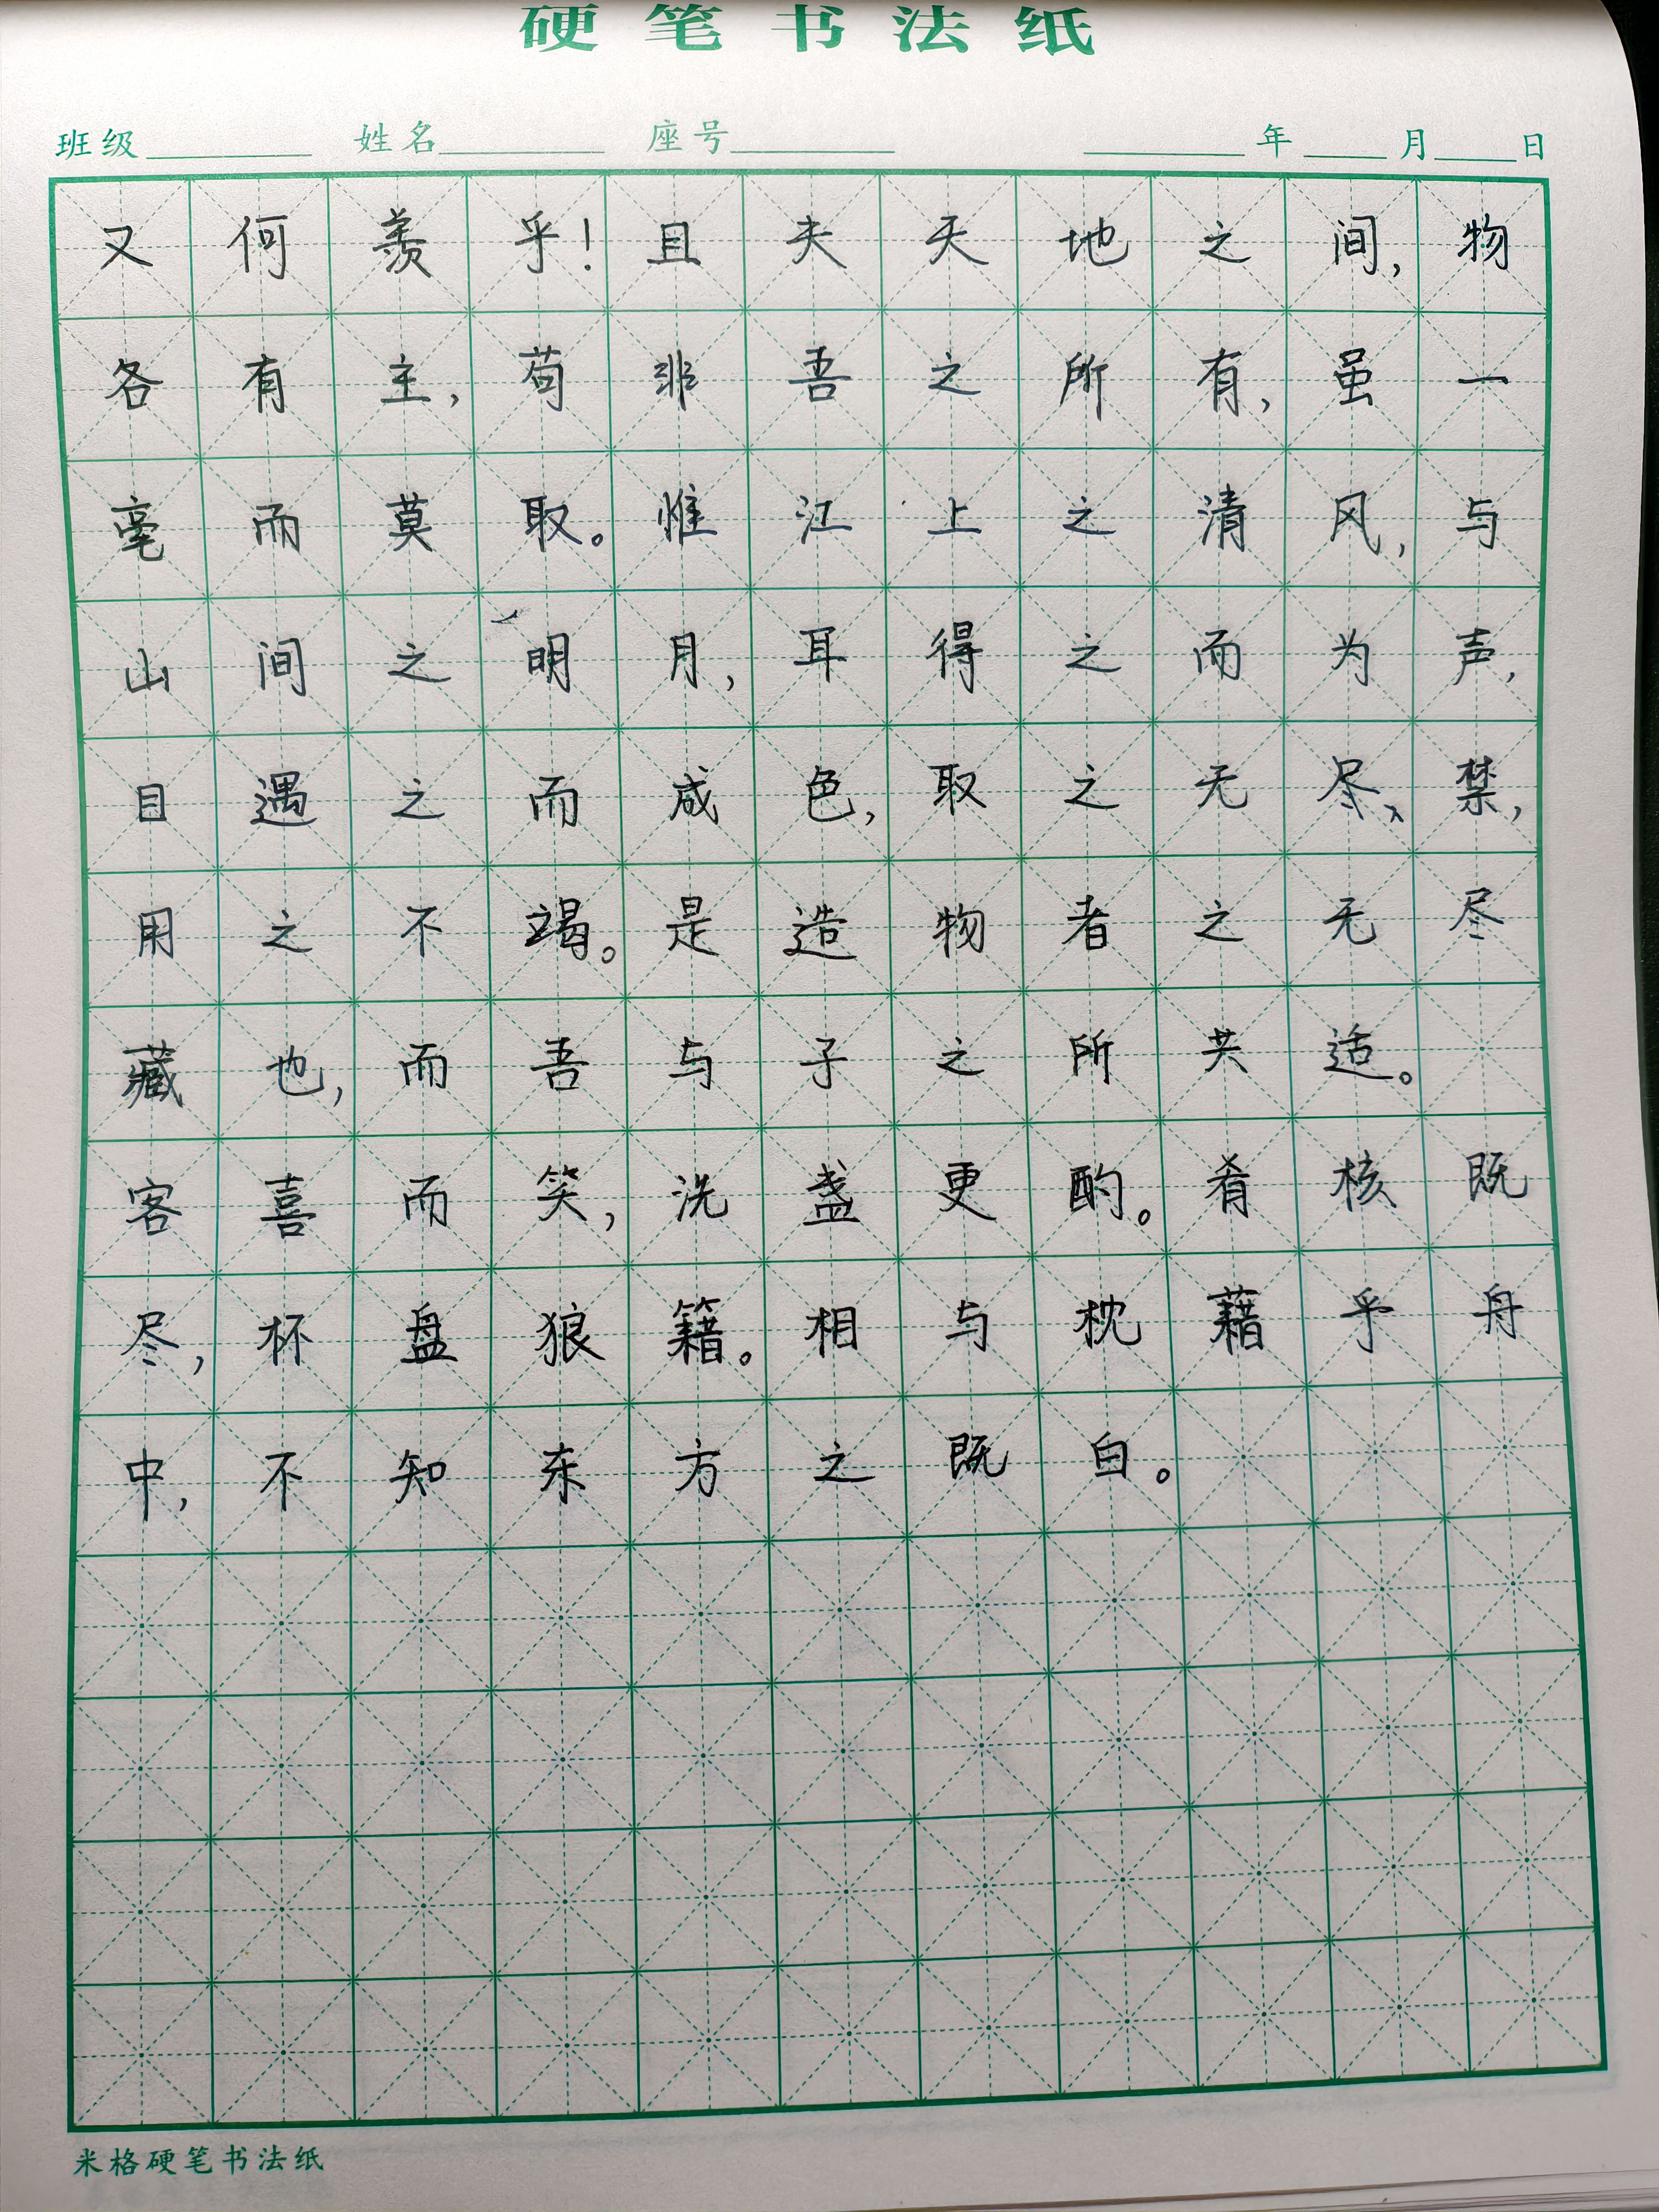 硬笔书法纸
班级 姓名 座号 年 月 日
又何羡乎！且夫天地之间，物
各有主，苟非吾之所有，虽一
毫而莫取。惟江上之清风，与
山间之明月，耳得之而为声，
目遇之而成色，取之无尽、禁，
用之不竭。是造物者之无尽
藏也，而吾与子之所共适。
客喜而笑，洗盏更酌。肴核既
尽，杯盘狼籍。相与枕藉乎舟
中，不知东方之既白。
米格硬笔书法纸